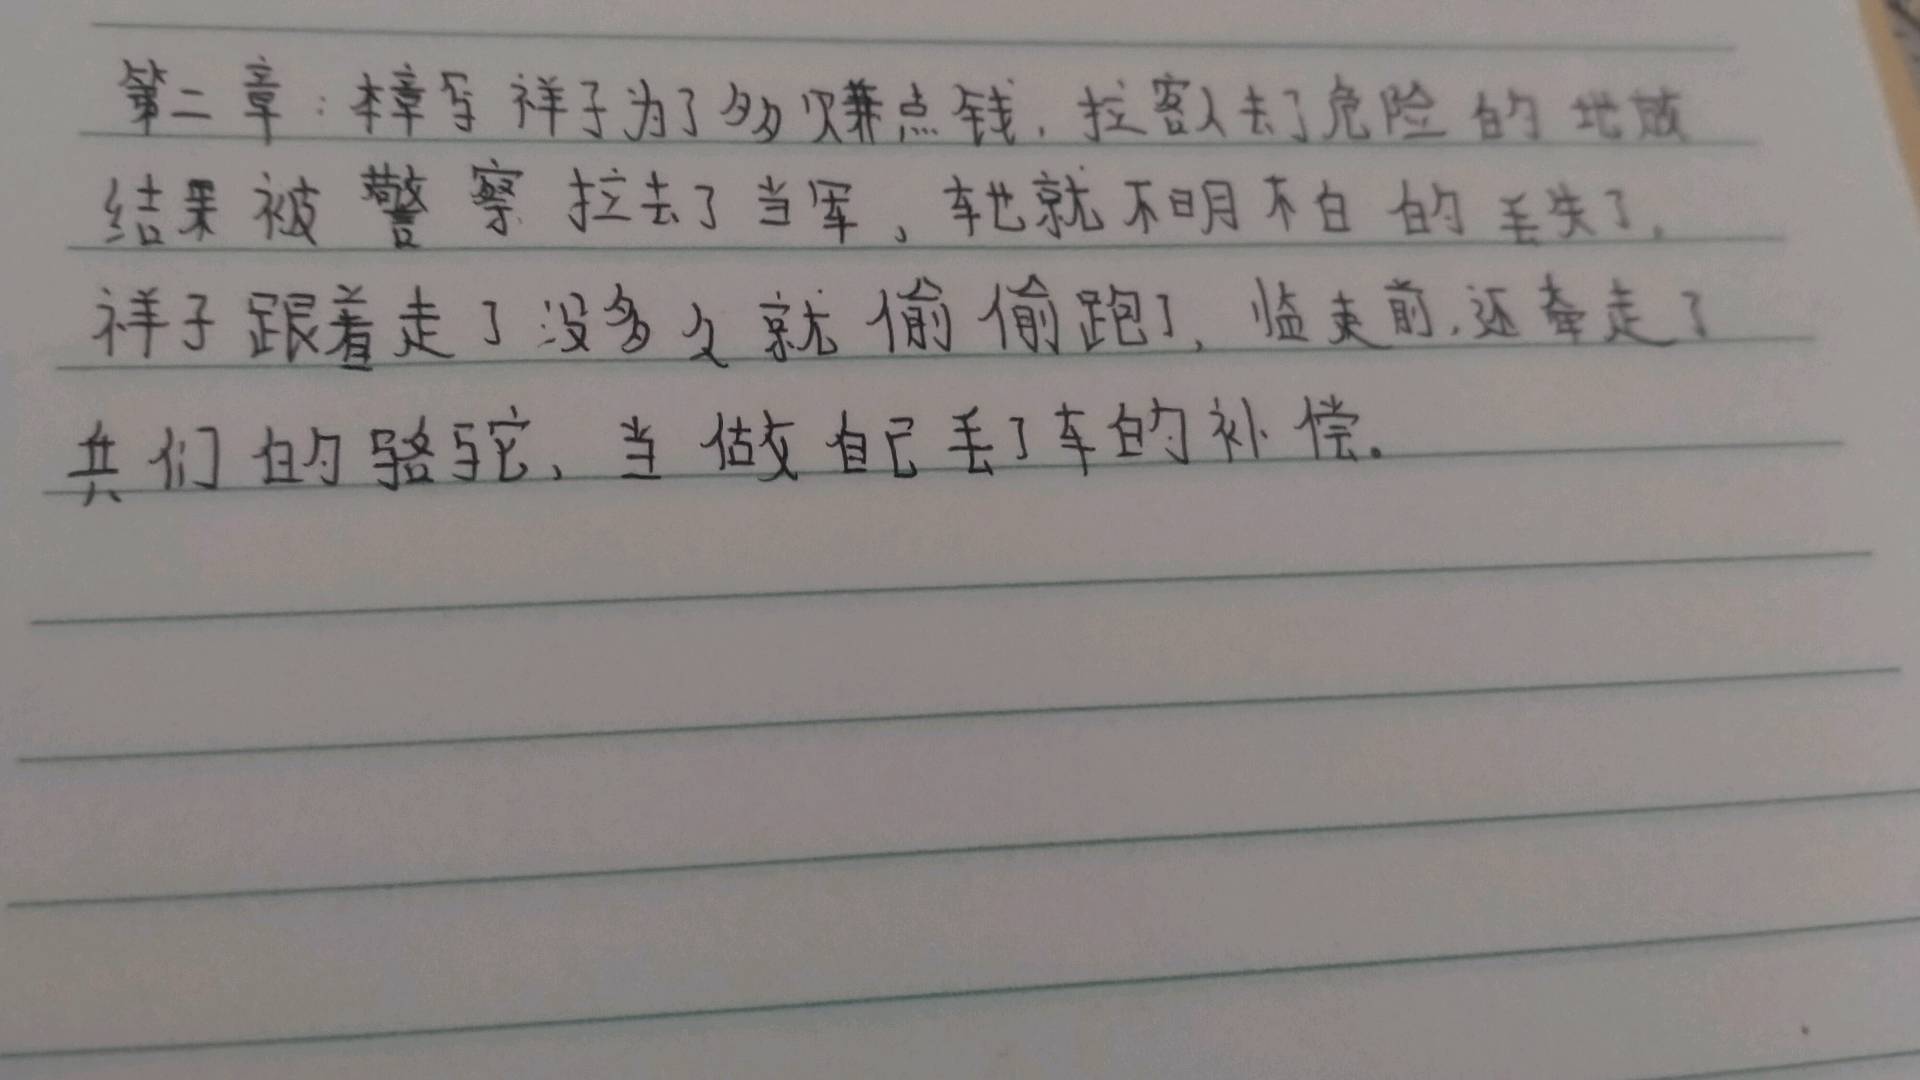 第二章：樟写祥子为了多赚点钱，拉客人去了危险的地放
结果被警察拉去了当军，车也就不明不白的丢失了，
祥子跟着走了没多久就偷偷跑了，临走前，还牵走了
兵们的骆驼，当做自己丢了车的补偿。